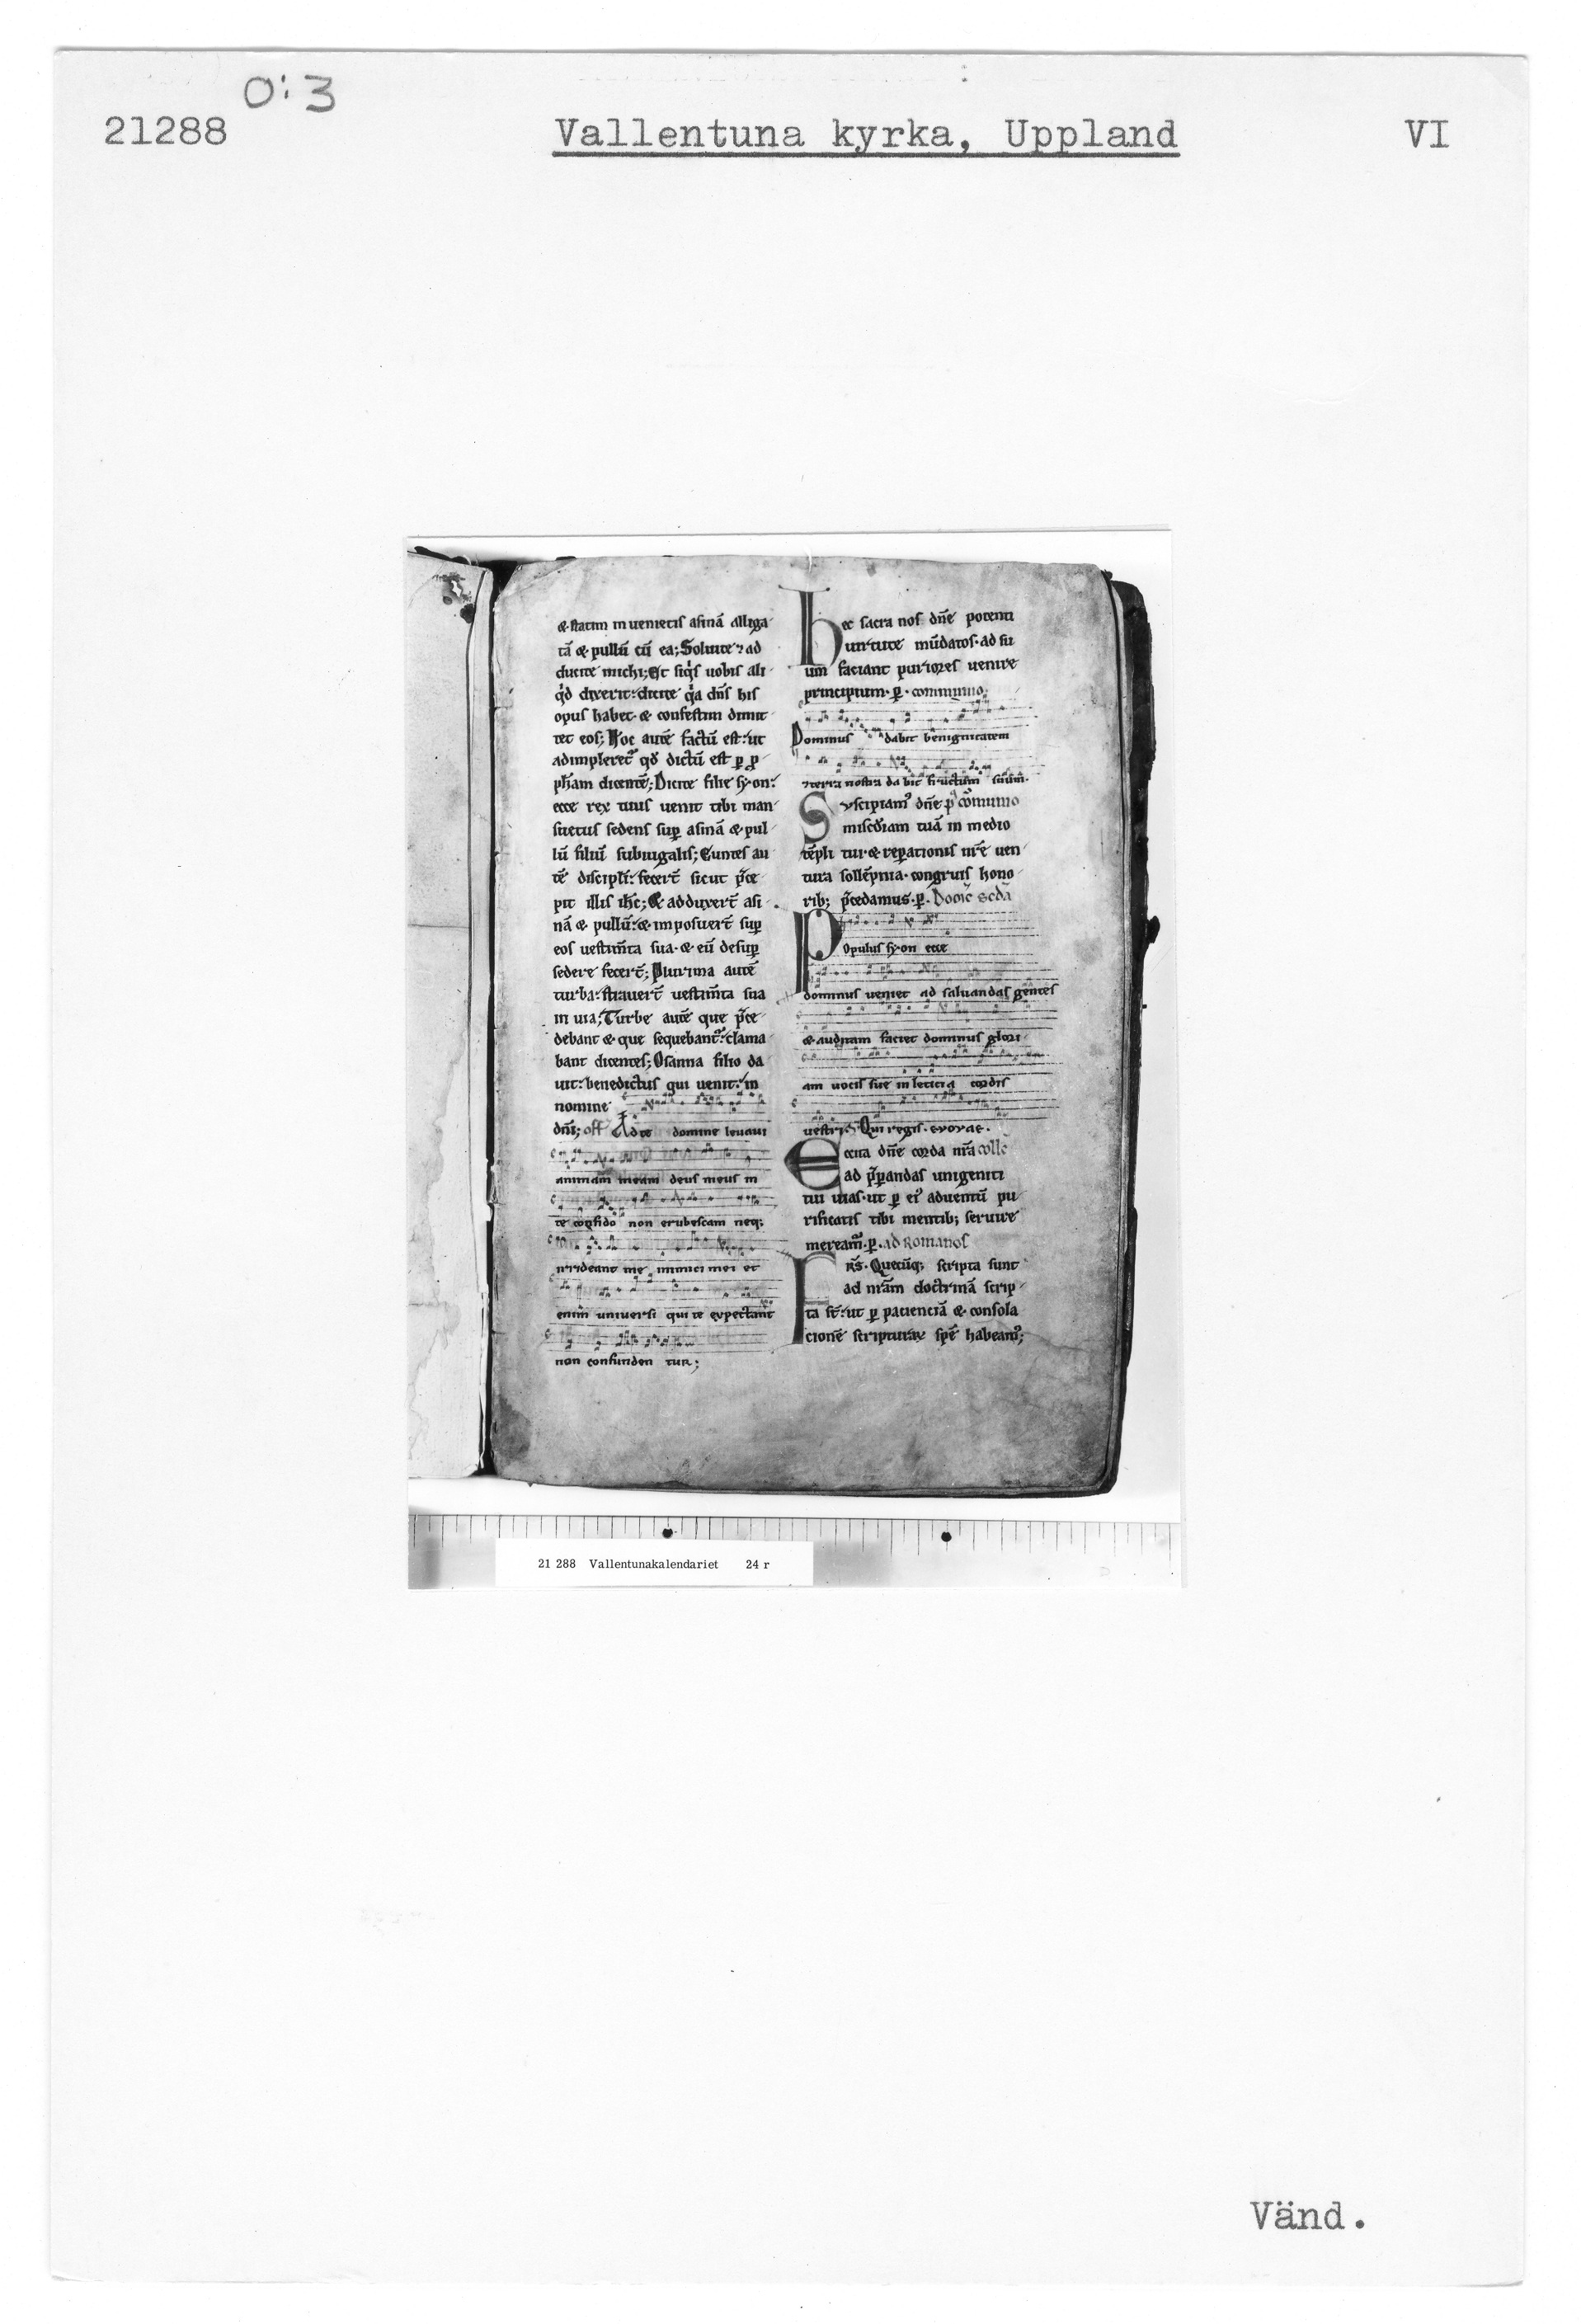 O:3
21288
Vallentuna kyrka, Uppland
VI
& statim inuenietis asinā alliga
tā & pullū cū ea; Soluite ⁊ ad
ducite michi; Et siqͥs uobis ali
qͥd dixerit: dicite qͥa dn̄s his
opus habet. & confestim dimit
tet eos; Hoc autē factū est: ut
adimpleret᷒ qd̄ dictū est ꝑ ꝓ
ph̄am dicentē; Dicite filie syon:
ecce rex tuus uenit tibi man
suetus sedens suꝑ asinā & pul
lū filiū subiugalis; Euntes au
tē discipl̄i: fecer̄t sicut p̄ce
pit illis ih̄c; & adduxer̄t asi
nā & pullū: & imposuer̄t suꝑ
eos uestim̄ta sua. & eū desuꝑ
sedere fecer̄t; Plurima autē
turba: strauer̄t uestim̄ta sua
in uia; Turbe autē que p̄ce
debant & que sequebant᷒: clama
bant dicentes; Osanna filio da
uit: benedictus qui uenit: in
nomine
dn̄i; off Ad te domine leuaui
animam meam deus meus in
te confido non erubescam neq;
irrideant me inimici mei et
enim uniuersi qui te expectant
non confunden tur;
hec sacra nos dn̄e potenti
uirtute mūdatos. ad su
um faciant puriores uenire
principium. ꝑ. communio
Dominus dabit benignitatem
⁊ terra nostra dabit fructum suum.
Suscipiam᷒ dn̄e p᷒ cōmunio
misc̄diam tuā in medio
tēpli tui & reꝑationis nr̄e uen
tura sollēpnia. congruis hono
rib; p̄cedamus. ꝑ. Domīc scdā
Populus syon ecce
dominus ueniet ad saluandas gentes
& auditam faciet dominus glori
am uocis sue in leticia cordis
uestri. Qui regis. evovae.
Excita dn̄e corda nr̄a colle
ad p̄parandas unigeniti
tui uias. ut ꝑ ei᷒ aduentū pu
rificatis tibi mentib; seruire
meream᷒. ꝑ. ad Romanos
Frs̄. Quecūq; scripta sunt
ad nr̄am doctrinā scrip
ta st̄: ut ꝑ pacienciā & consola
cionē scripturaꝝ spē habeam᷒;
21 288 Vallentunakalendariet 24 r
Vänd.